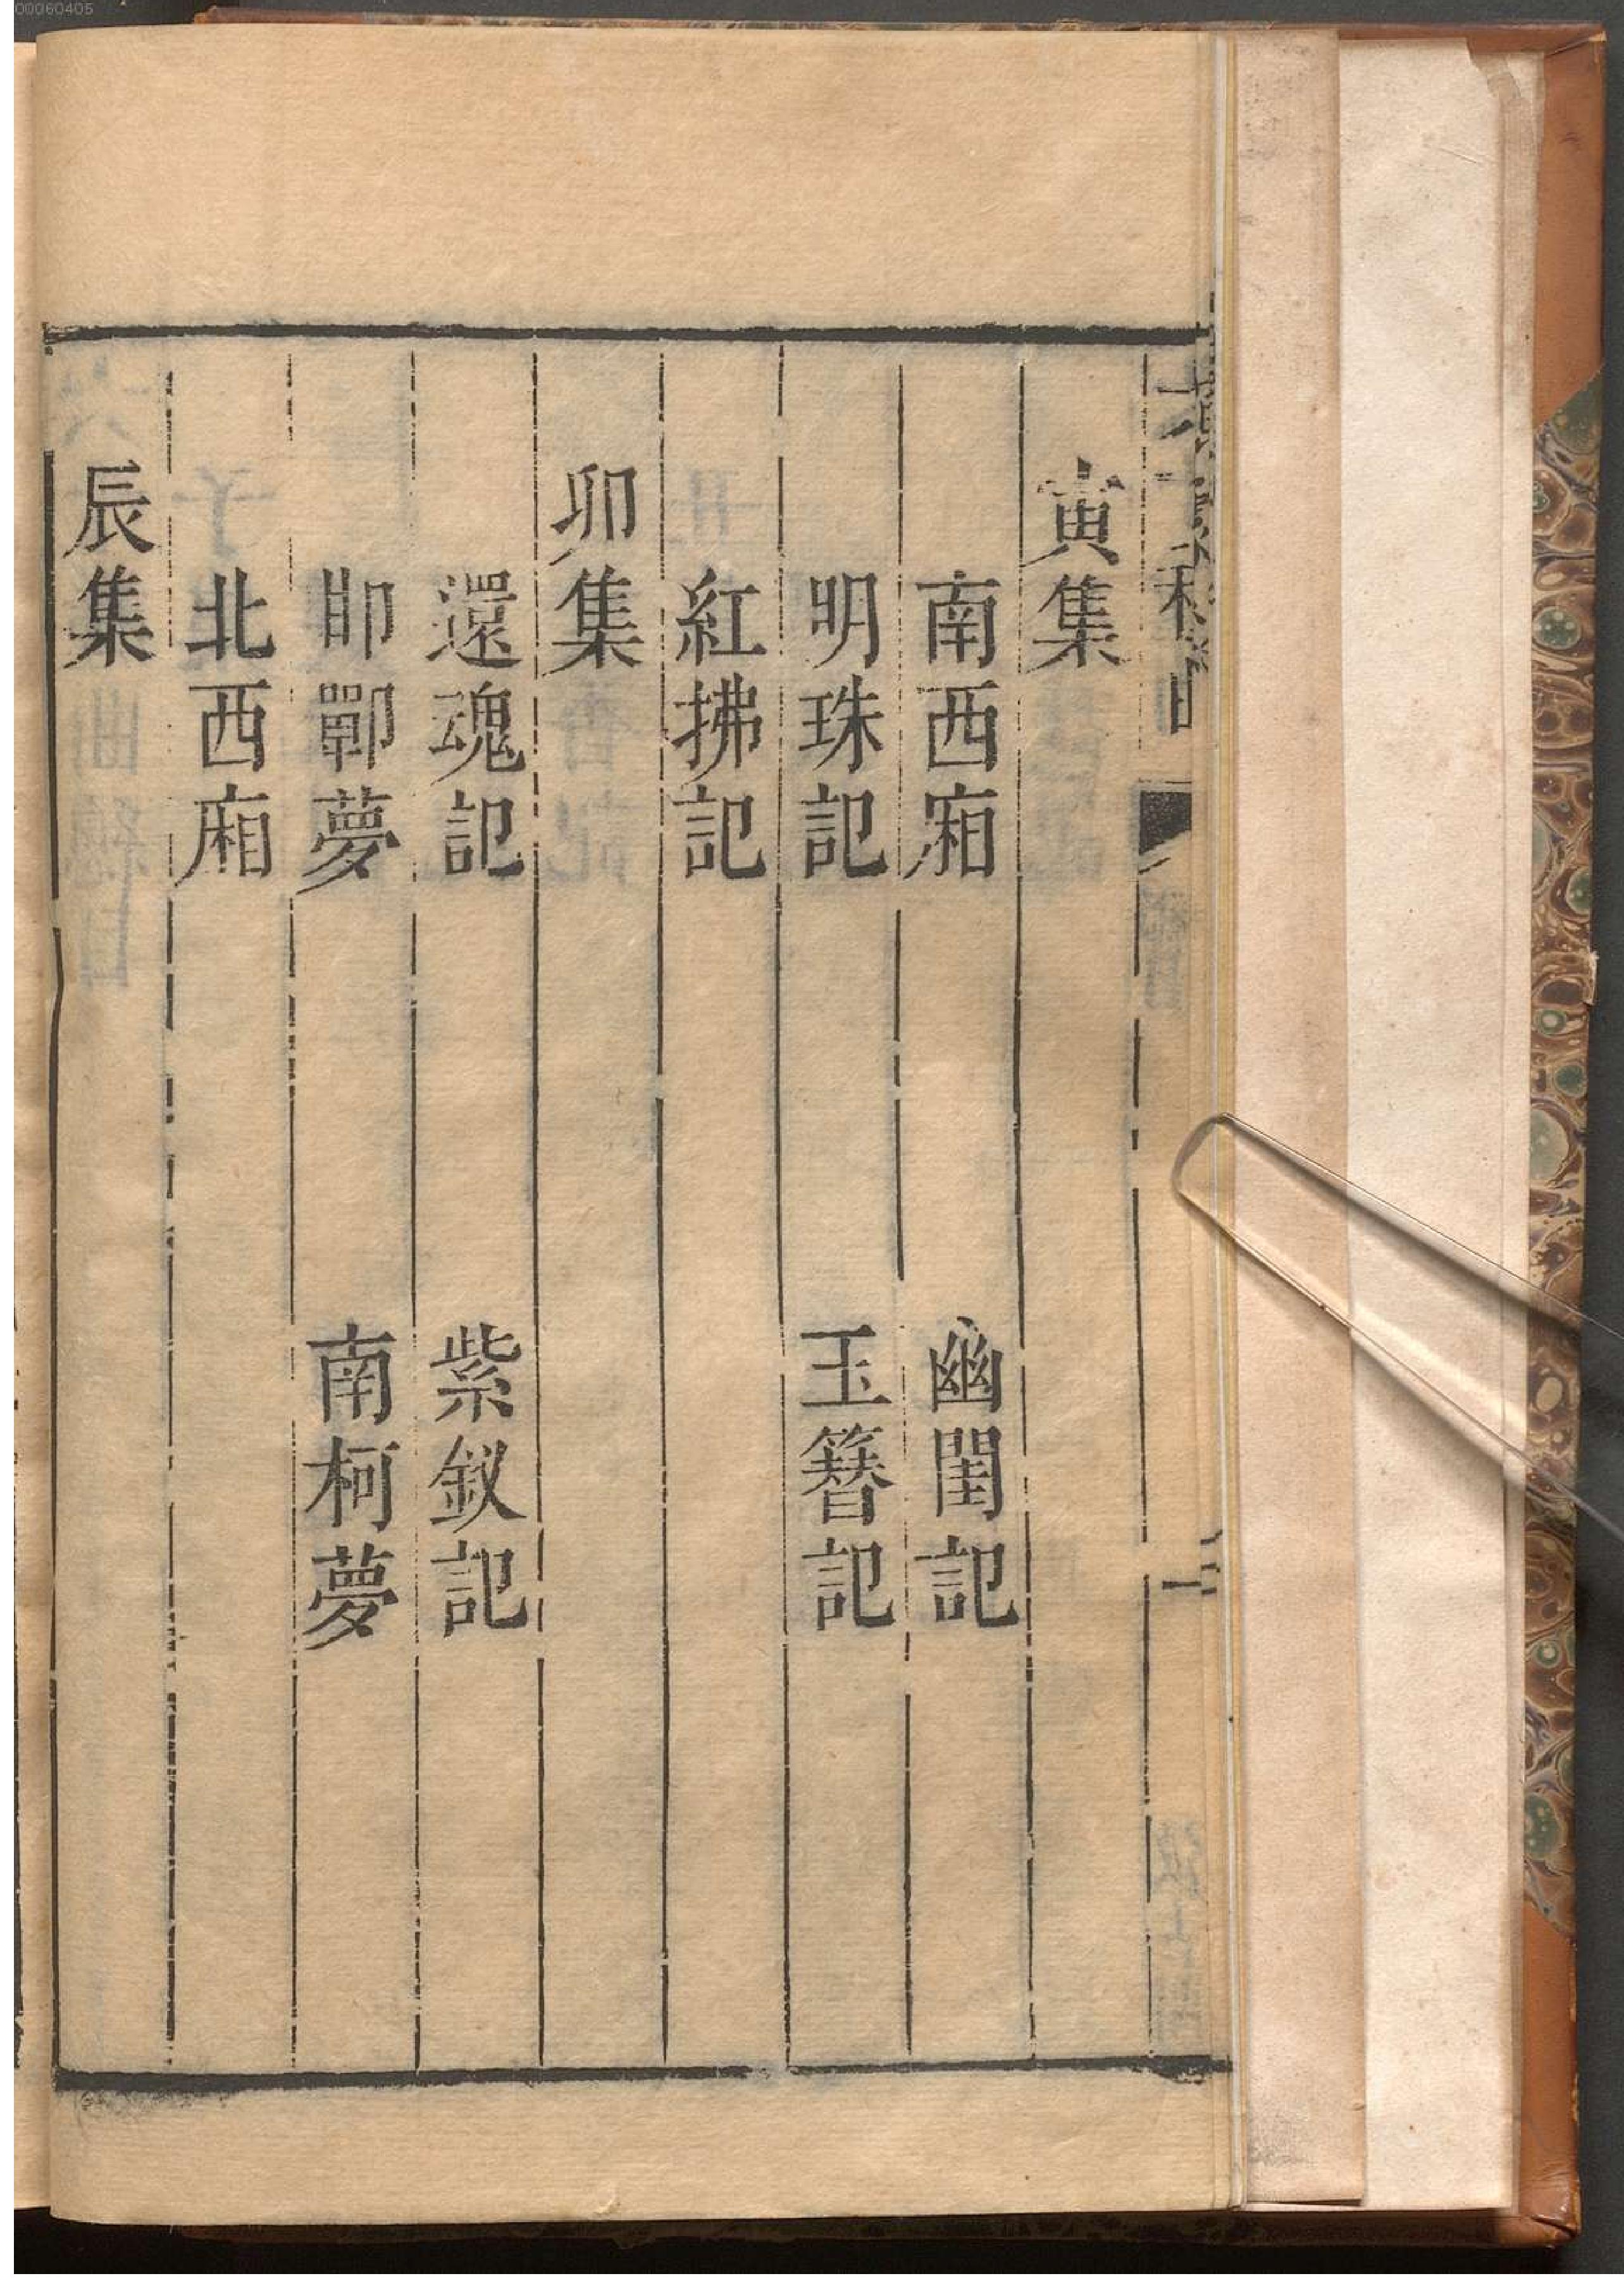 00060405
寅集
南西廂 幽閨記
明珠記 玉簪記
紅拂記
卯集
還魂記 紫釵記
邯鄲夢 南柯夢
北西廂
辰集